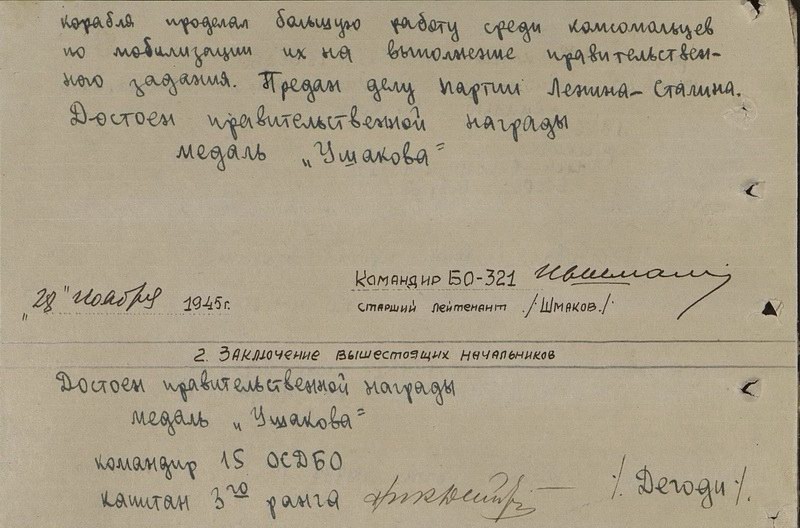 корабля проделал большую работу среди комсомольцев
по мобилизации их на выполнение правительствен-
ного задания. Предан делу партии Ленина–Сталина.
Достоен правительственной награды
медаль „Ушакова"
Командир БО-321
„28" ноября 1945г. старший лейтенант /Шмаков./
2. Заключение вышестоящих начальников
Достоен правительственной награды
медаль „Ушакова"
командир 1S ОСДБО
капитан 3го ранга /. Дегоди /.